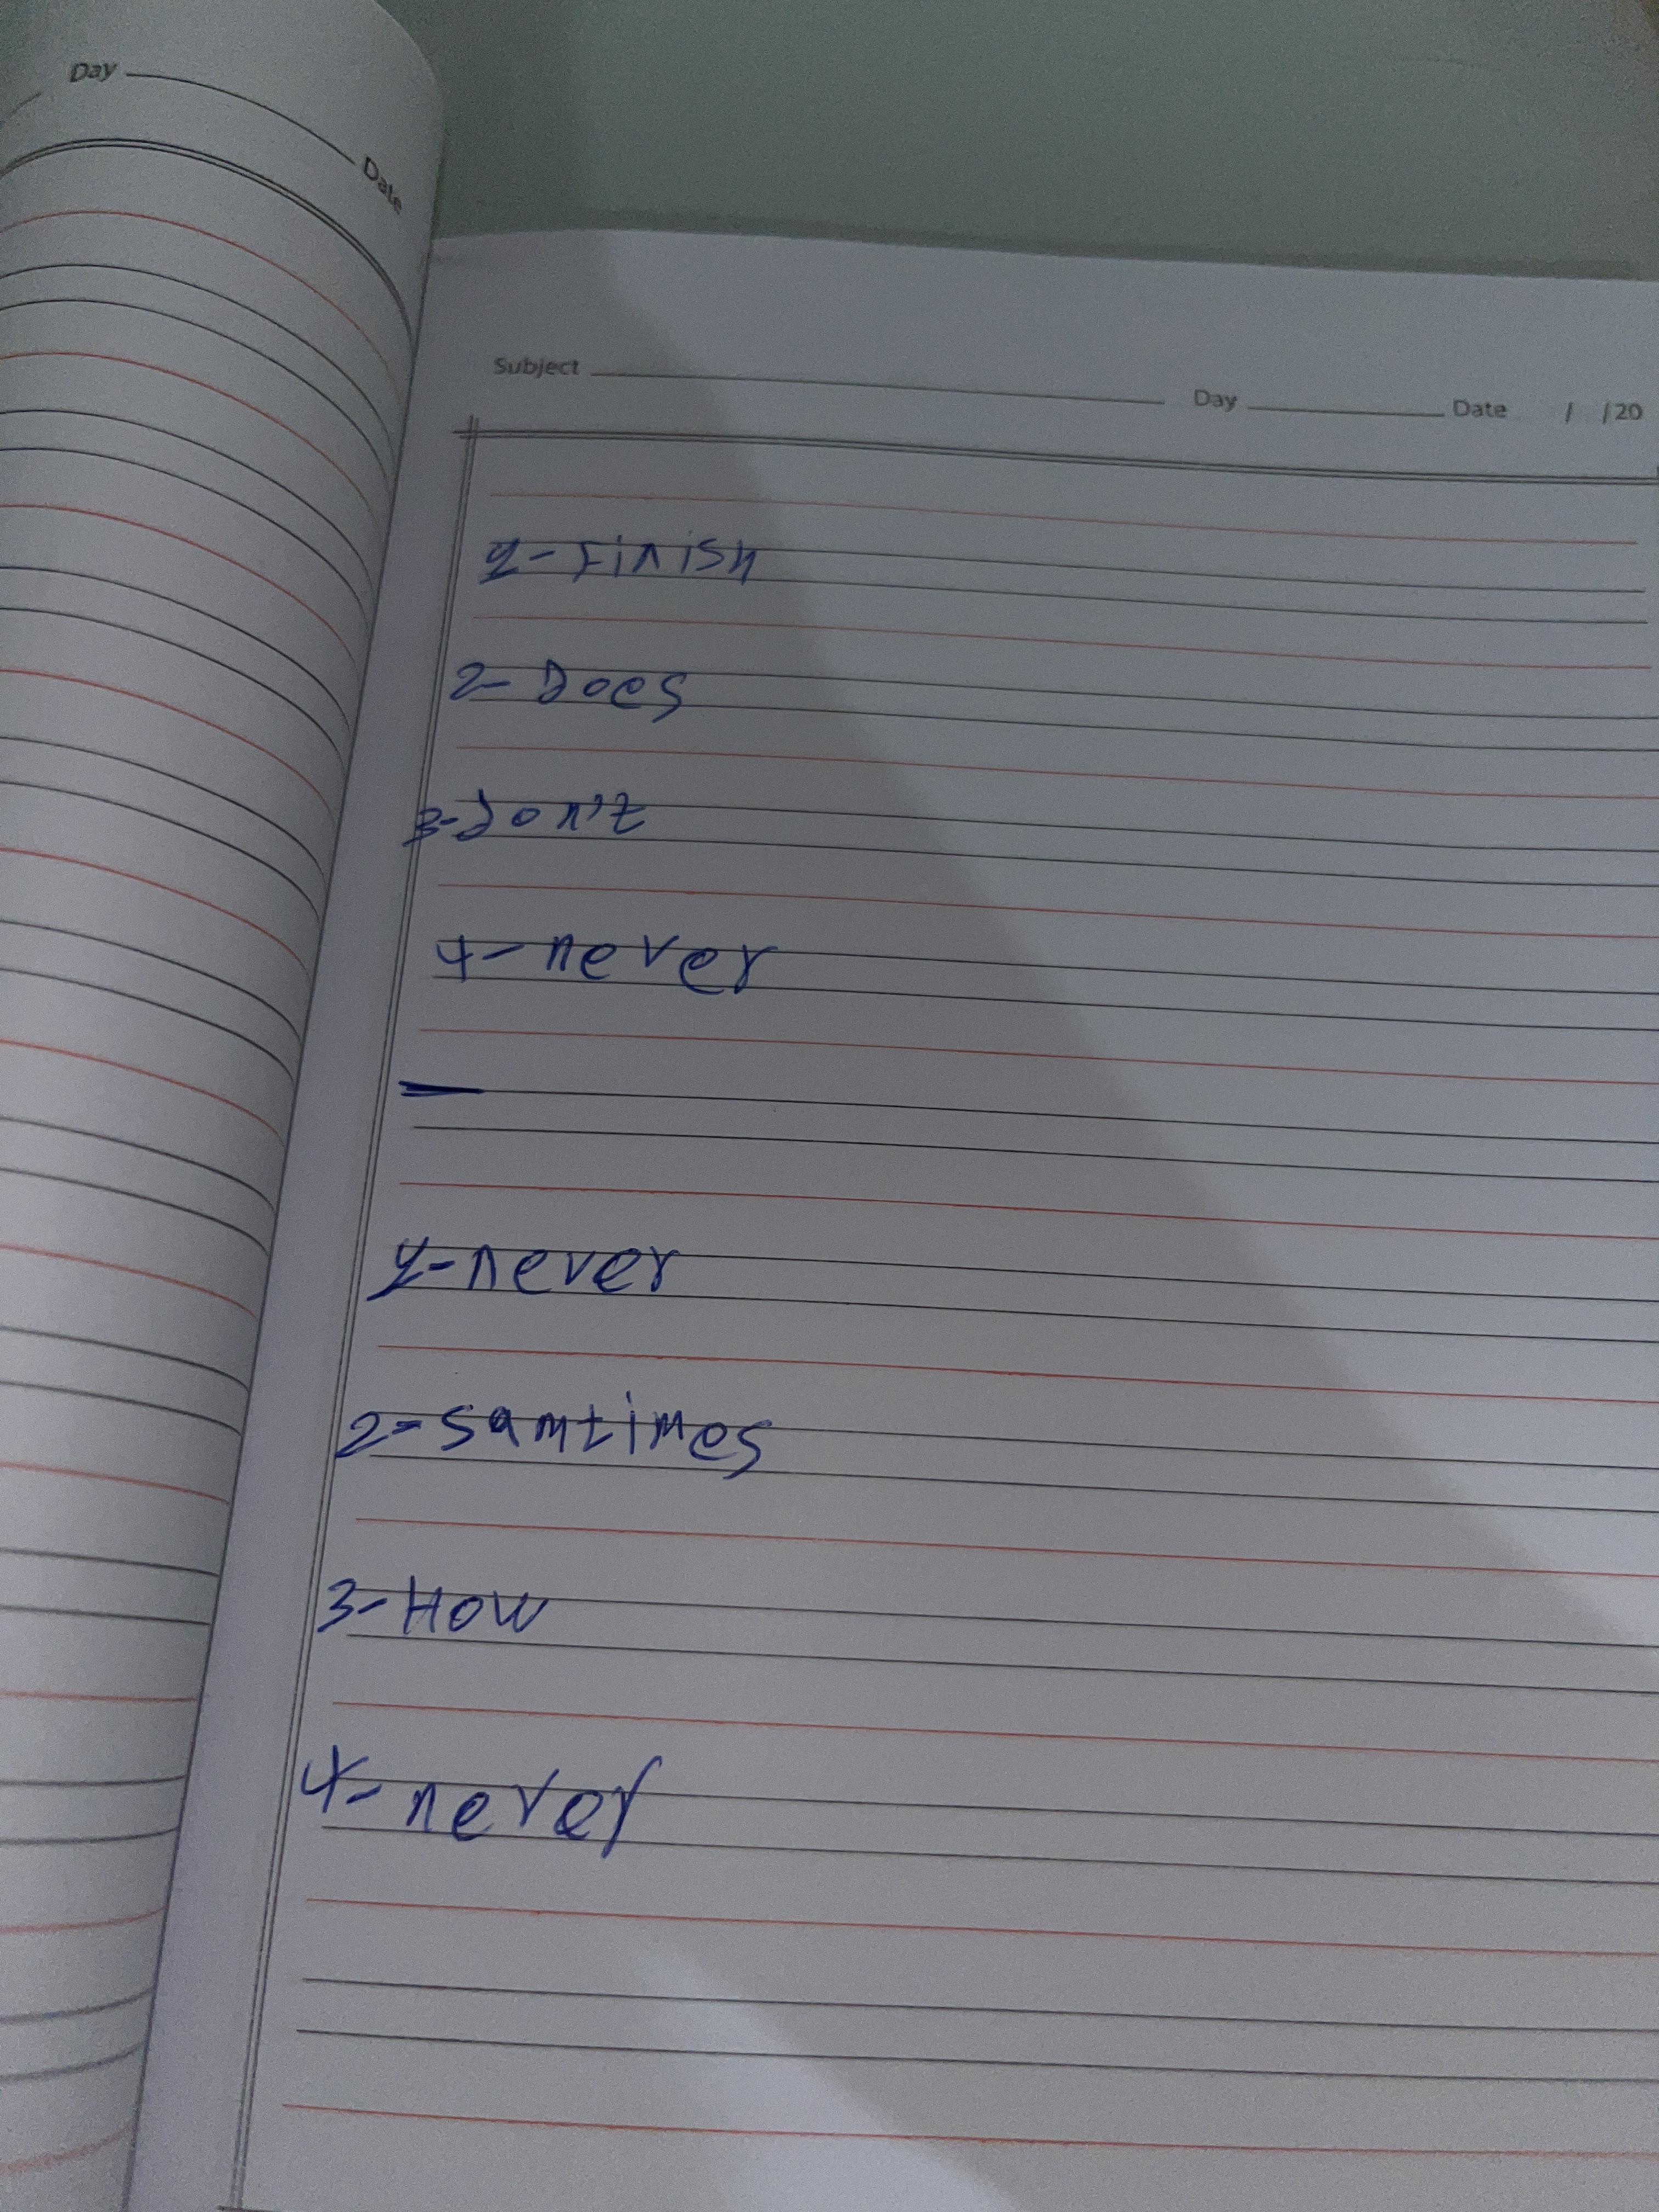 Day Date
Subject Day Date / /20
1- Finish
2- Does
3- don't
4- never
1- never
2- samtimes
3- How
4- never